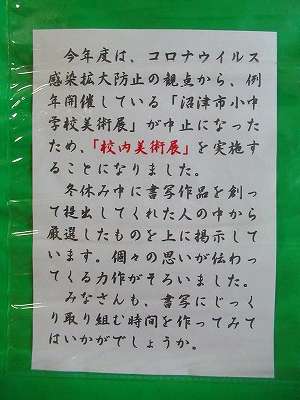 今年度は、コロナウイルス
感染拡大防止の観点から、例
年開催している「沼津市小中
学校美術展」が中止になった
ため、「校内美術展」を実施す
ることになりました。
冬休み中に書写作品を創っ
て提出してくれた人の中から
厳選したものを上に掲示して
います。個々の思いが伝わっ
てくる力作がそろいました。
みなさんも、書写にじっく
り取り組む時間を作ってみて
はいかがでしょうか。